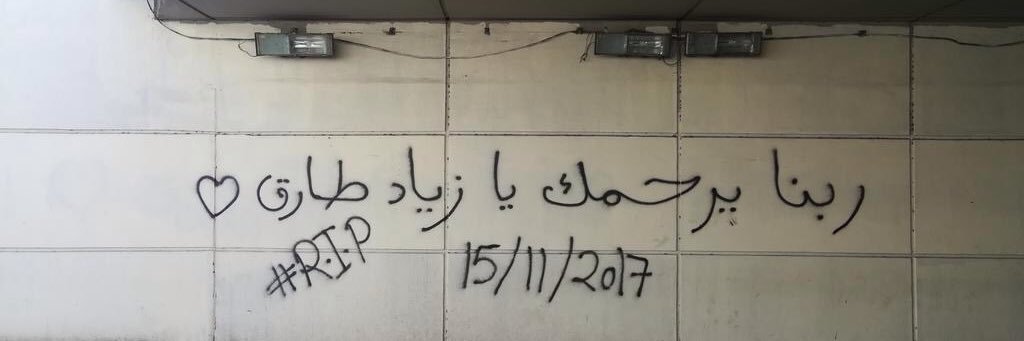 ربنا يرحمك يا زياد طارق ♡
#R.I.P
15/11/2017